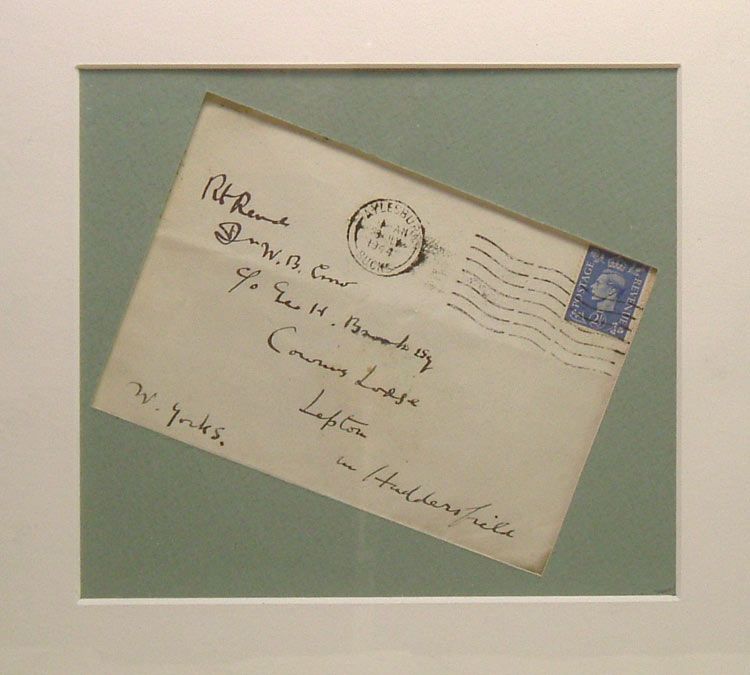 Rt Revd
Dr W. B. Crow
c/o Geo H. Brook Esq
Lodge
Lepton
nr Huddersfield
W. Yorks.
AYLESBURY
1944
BUCKS
POSTAGE
REVENUE
2½D